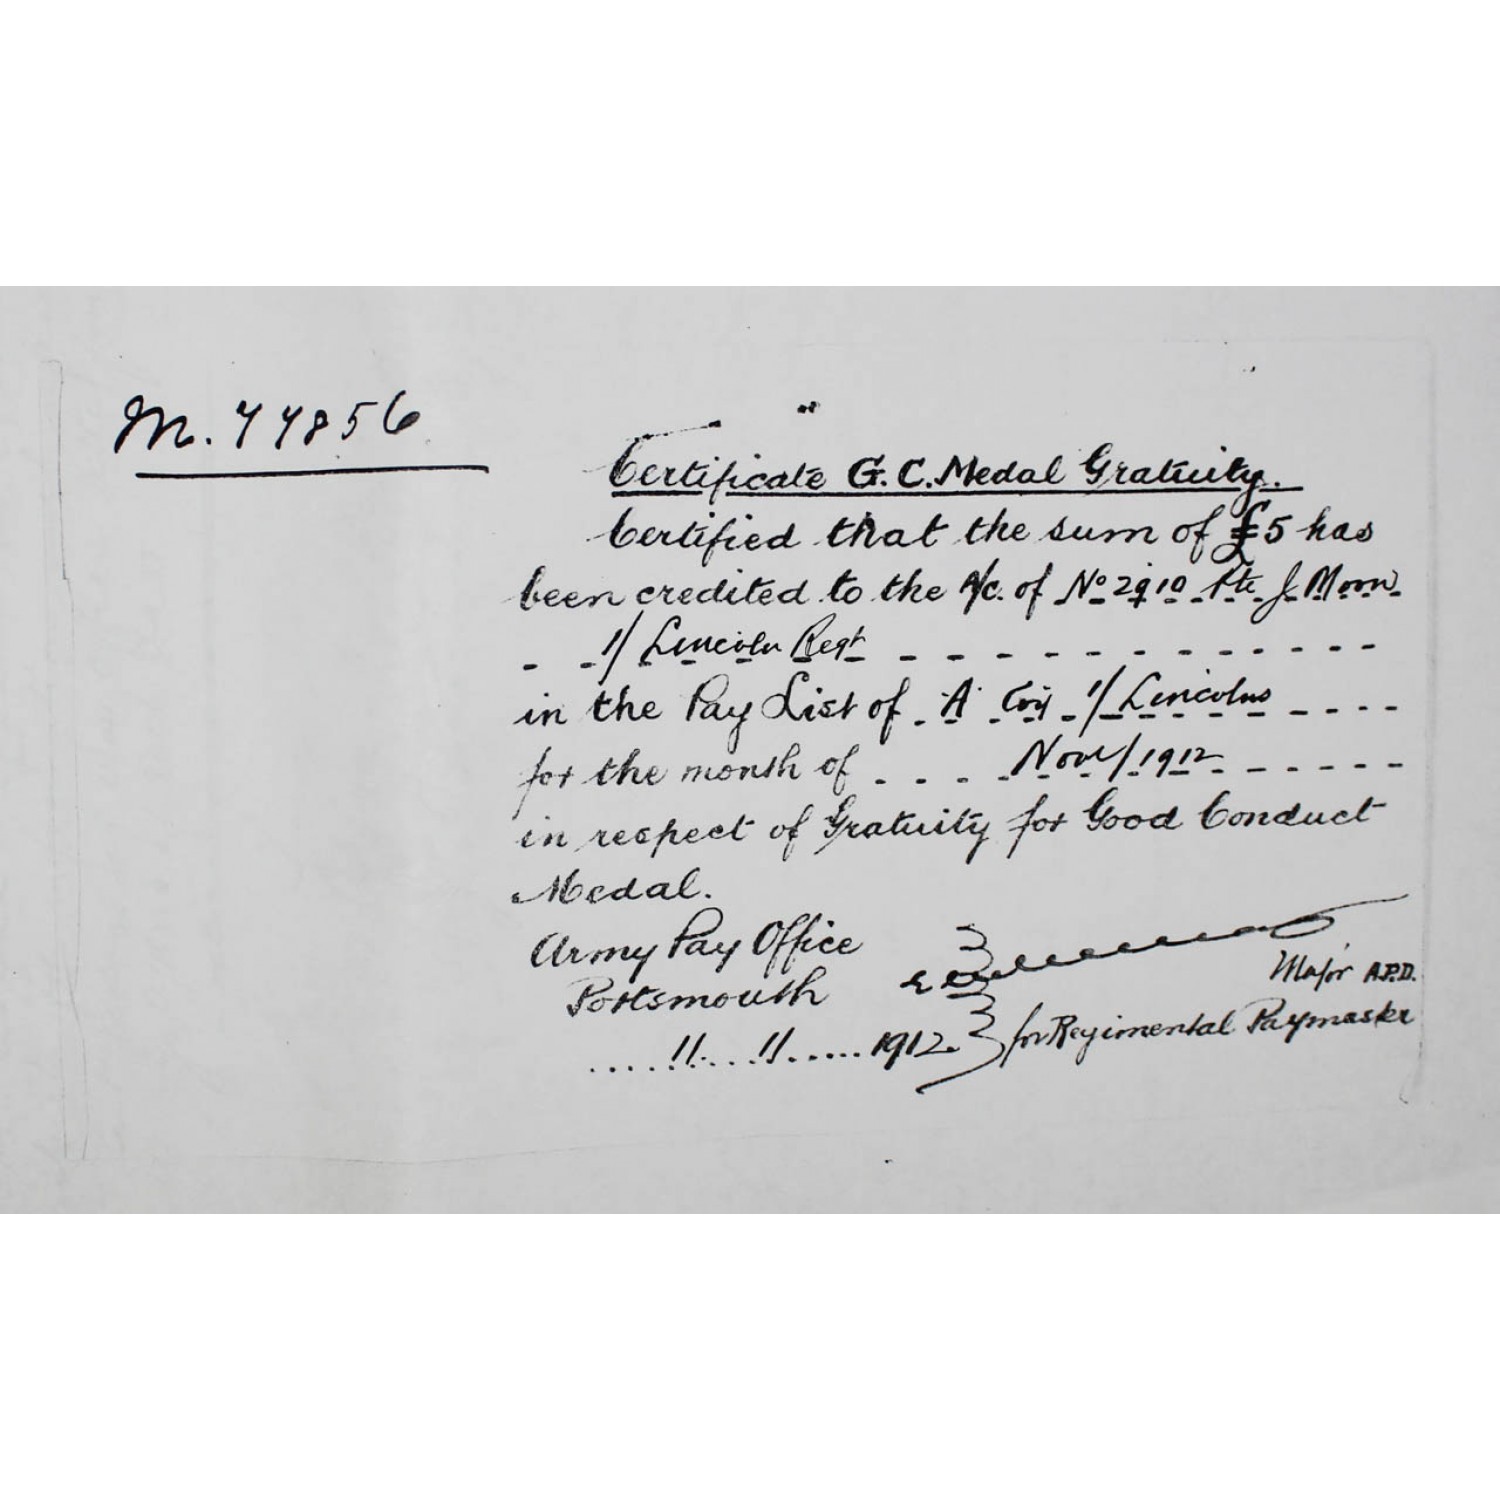 M. 77856
Certificate G.C. Medal Gratuity.
Certified that the sum of £5 has
been credited to the A/c. of No 2910 Pte J. Moon
1/ Lincoln Regt
in the Pay List of "A" Coy 1/ Lincolns
for the month of Novr/1912
in respect of Gratuity for Good Conduct
Medal.
Army Pay Office
Portsmouth
Major A.P.D.
11 11 1912. for Regimental Paymaster